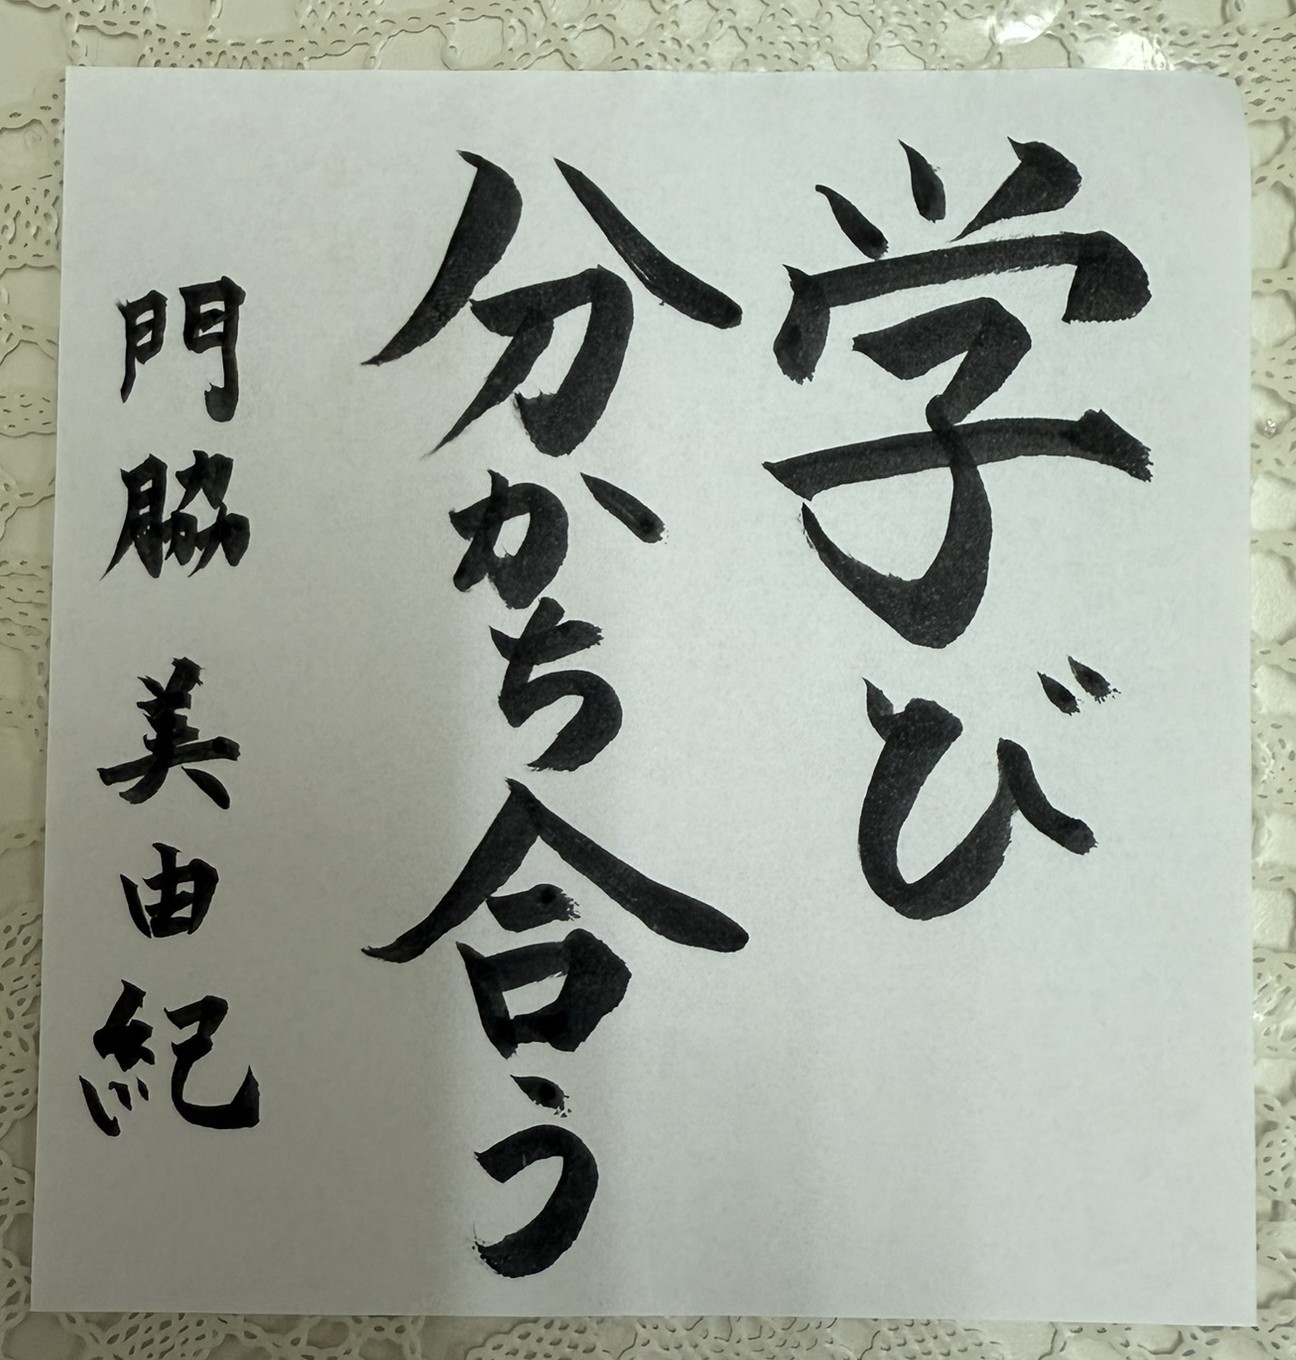 学び
分かち合う
門脇 美由紀